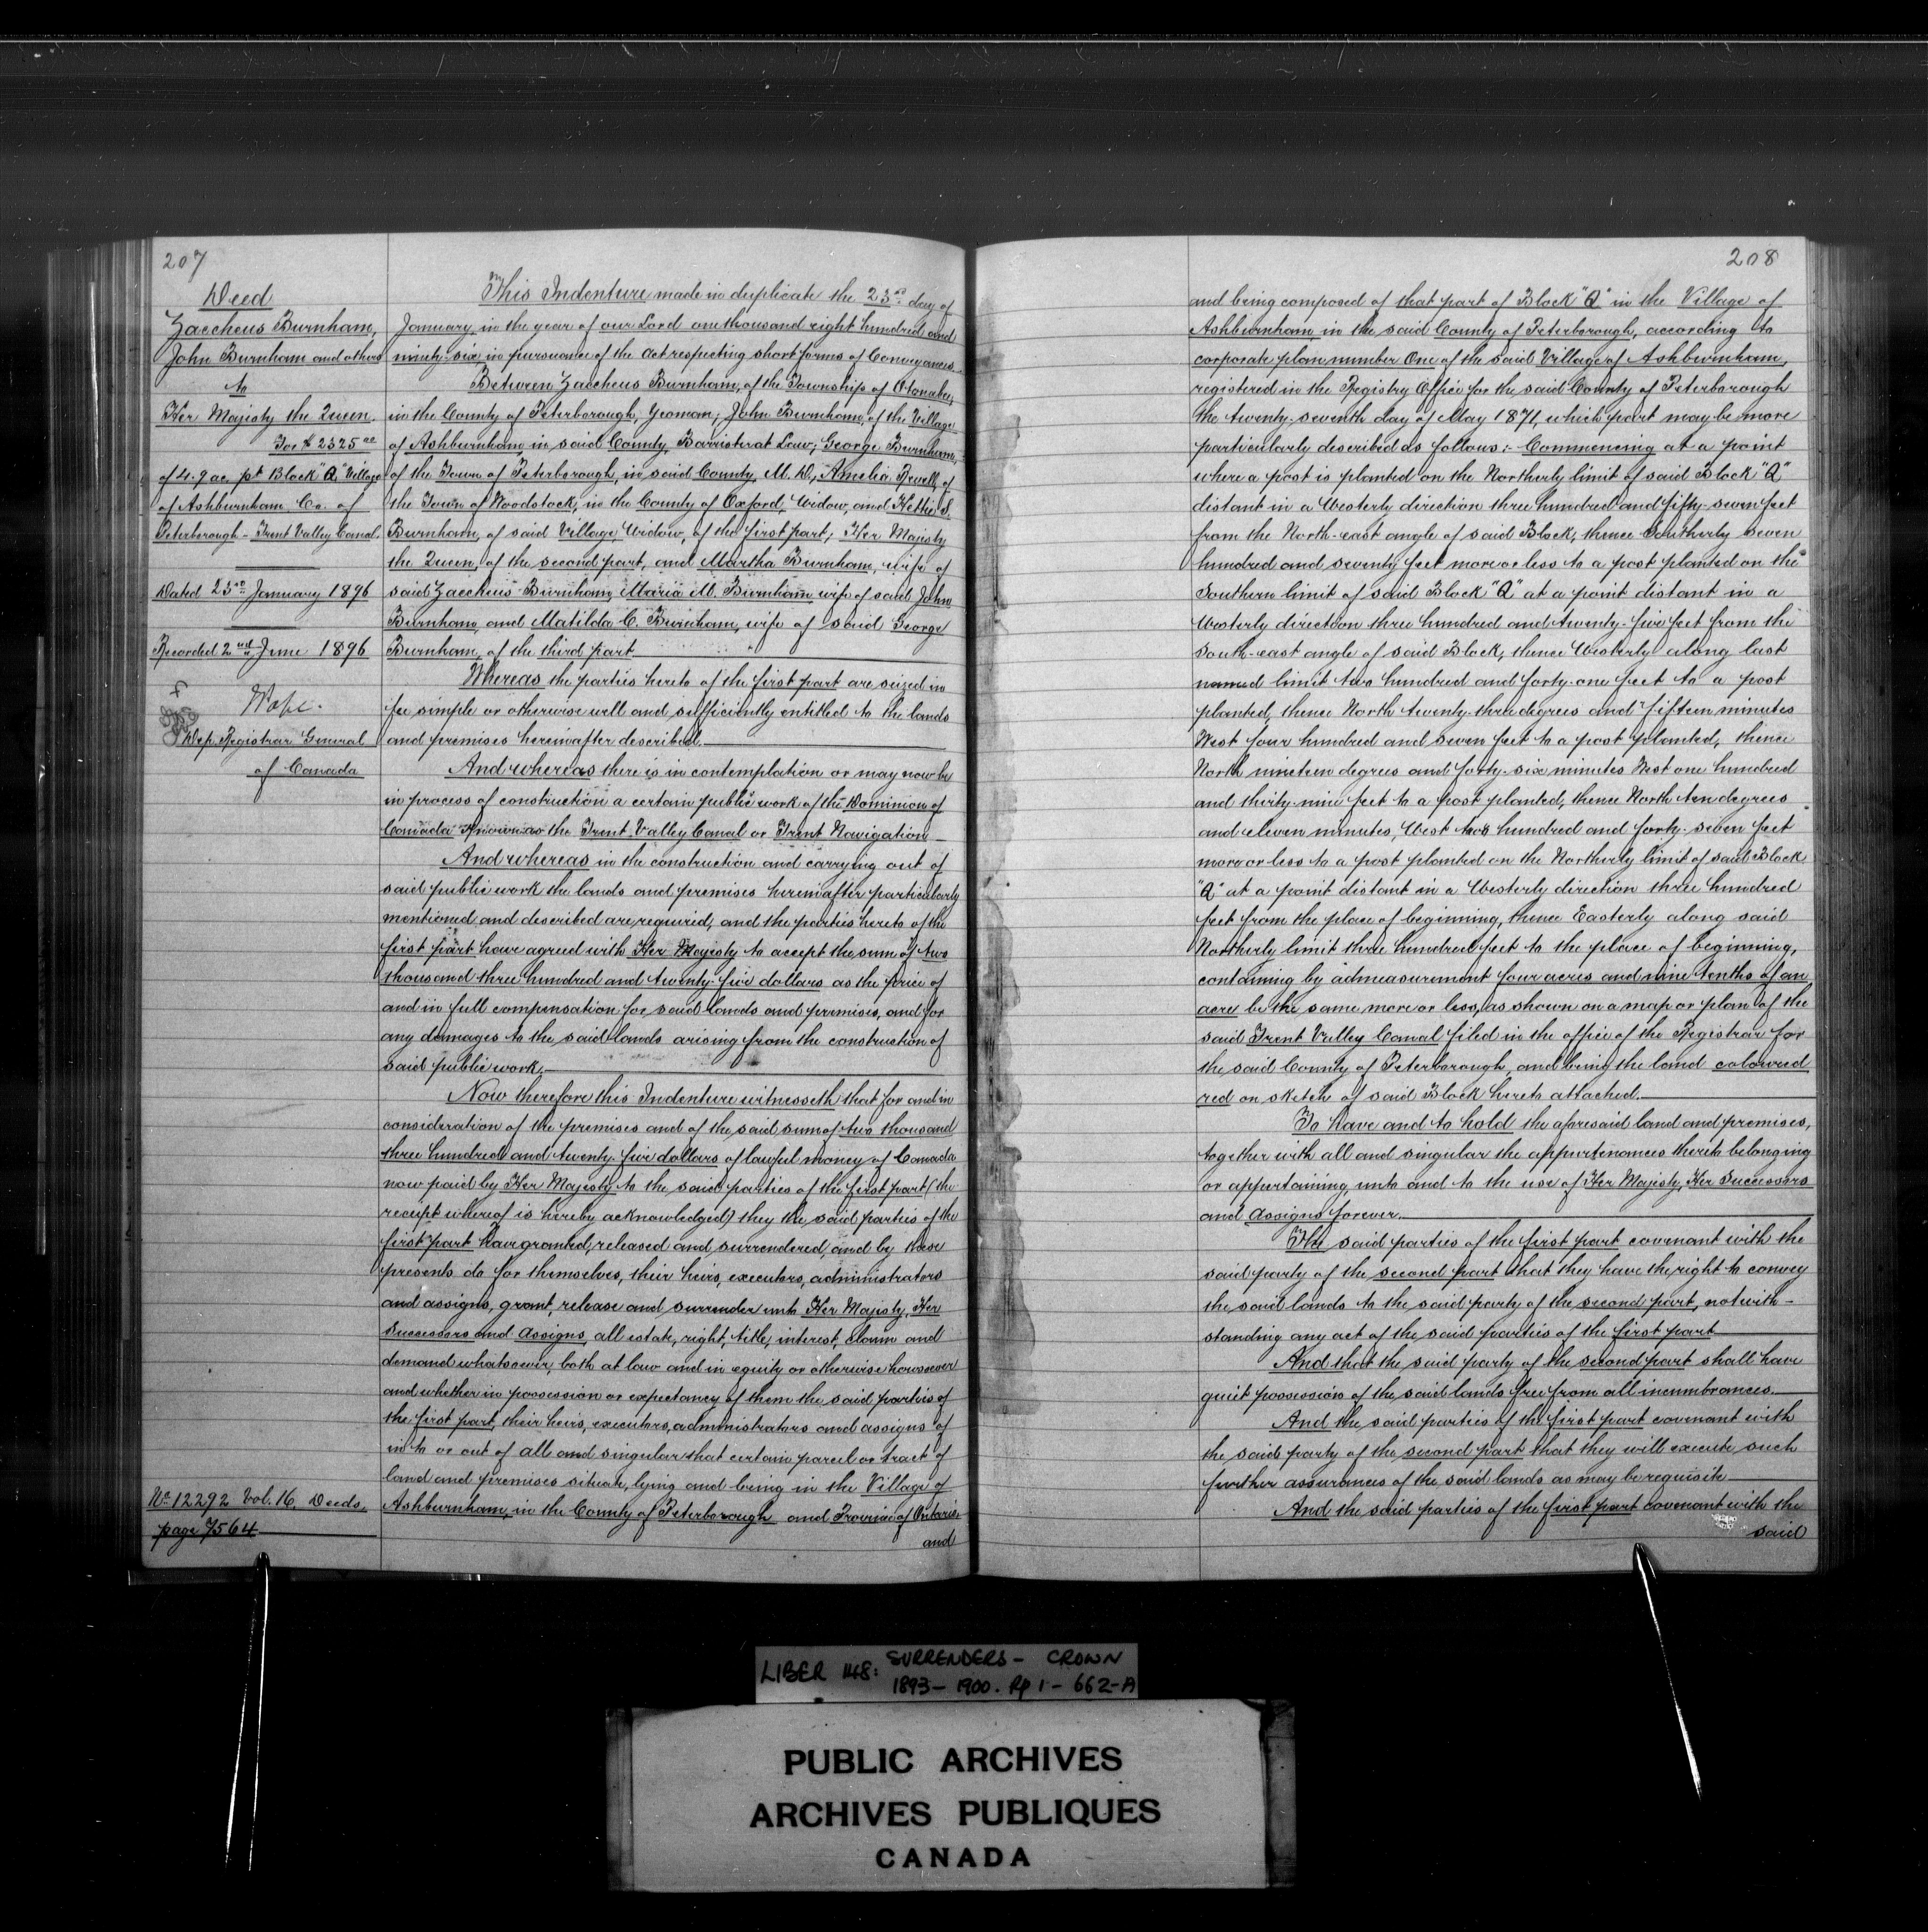 207
Deed
Zaccheus Burnham,
John Burnham and others
to
Her Majesty the Queen.
For $2325.00
of 4.9 ac. pt Block "Q" Village
of Ashburnham Co. of
Peterborough - Trent Valley Canal.
Dated 23rd January 1896
Recorded 2nd June 1896
Dep. Registrar General
of Canada
No 12292 Vol. 16. Deeds.
page 564
This Indenture made in duplicate the 23rd day of
January, in the year of our Lord one thousand eight hundred and
ninety-six, in pursuance of the Act respecting short forms of Conveyances
Between Zaccheus Burnham, of the Township of Otonabee,
in the County of Peterborough, Yeoman; John Burnham, of the Village
of Ashburnham, in said County, Barrister at Law; George Burnham,
of the Town of Peterborough, in said County, M.D., Amelia Revell, of
the Town of Woodstock, in the County of Oxford, Widow, and Hettie S.
Burnham, of said Village, Widow, of the first part; Her Majesty
the Queen, of the second part, and Martha Burnham, wife of
said Zaccheus Burnham, Maria M. Burnham, wife of said John
Burnham, and Matilda C. Burnham, wife of said George
Burnham, of the third part.
Whereas the parties hereto of the first part are seized in
fee simple or otherwise well and sufficiently entitled to the lands
and premises hereinafter described.
And whereas there is in contemplation or may now be
in process of construction a certain public work of the Dominion of
Canada known as the Trent Valley Canal or Trent Navigation
And whereas in the construction and carrying out of
said public work the lands and premises hereinafter particularly
mentioned and described are required, and the parties hereto of the
first part have agreed with Her Majesty to accept the sum of two
thousand three hundred and twenty-five dollars as the price of
and in full compensation for said lands and premises, and for
any damages to the said lands arising from the construction of
said public work.
Now therefore this Indenture witnesseth that for and in
consideration of the premises and of the said sum of two thousand
three hundred and twenty-five dollars of lawful money of Canada
now paid by Her Majesty to the said parties of the first part (the
receipt whereof is hereby acknowledged) they the said parties of the
first part have granted, released and surrendered, and by these
presents do for themselves, their heirs, executors, administrators
and assigns, grant, release and surrender unto Her Majesty, Her
Successors and Assigns, all estate, right, title, interest, claim and
demand whatsoever, both at law and in equity or otherwise howsoever
and whether in possession or expectancy of them the said parties of
the first part, their heirs, executors, administrators and assigns of
in to or out of all and singular that certain parcel or tract of
land and premises situate, lying and being in the Village of
Ashburnham, in the County of Peterborough and Province of Ontario
and
208
and being composed of that part of Block "Q" in the Village of
Ashburnham in the said County of Peterborough, according to
corporate plan number One of the said Village of Ashburnham,
registered in the Registry Office for the said County of Peterborough
the twenty-seventh day of May 1871, which part may be more
particularly described as follows:- Commencing at a point
where a post is planted on the Northerly limit of said Block "Q"
distant in a Westerly direction three hundred and fifty-seven feet
from the North-east angle of said Block, thence Southerly seven
hundred and seventy feet more or less to a post planted on the
Southern limit of said Block "Q" at a point distant in a
Westerly direction three hundred and twenty-five feet from the
South-east angle of said Block, thence Westerly along last
named limit two hundred and forty-one feet to a post
planted, thence North twenty-three degrees and fifteen minutes
West four hundred and seven feet to a post planted, thence
North nineteen degrees and forty-six minutes West one hundred
and thirty-nine feet to a post planted, thence North ten degrees
and eleven minutes, West two hundred and forty-seven feet
more or less to a post planted on the Northerly limit of said Block
"Q" at a point distant in a Westerly direction three hundred
feet from the place of beginning, thence Easterly along said
Northerly limit three hundred feet to the place of beginning,
containing by admeasurement four acres and nine tenths of an
acre be the same more or less, as shown on a map or plan of the
said Trent Valley Canal filed in the office of the Registrar for
the said County of Peterborough, and being the land coloured
red on sketch of said Block hereto attached.
To have and to hold the aforesaid land and premises,
together with all and singular the appurtenances thereto belonging
or appertaining, unto and to the use of Her Majesty, Her Successors
and Assigns forever.
The said parties of the first part covenant with the
said party of the second part that they have the right to convey
the said lands to the said party of the second part, notwith-
standing any act of the said parties of the first part
And that the said party of the second part shall have
quiet possession of the said lands free from all incumbrances.
And the said parties of the first part covenant with
the said party of the second part that they will execute such
further assurances of the said lands as may be requisite
And the said parties of the first part covenant with the
said
LIBER 148: SURRENDERS - CROWN
1893-1900. Pp 1-662-A
PUBLIC ARCHIVES
ARCHIVES PUBLIQUES
CANADA